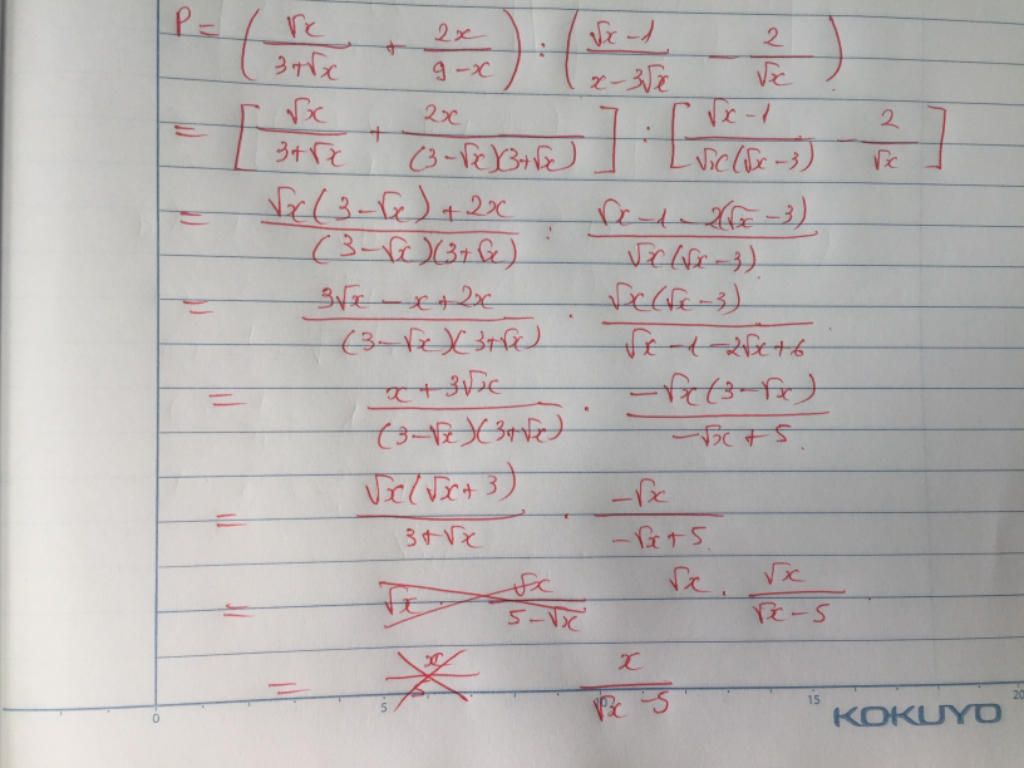 P = (√x/(3+√x) + 2x/(9-x)) : ((√x-1)/(x-3√x) - 2/√x)
= [√x/(3+√x) + 2x/((3-√x)(3+√x))] : [(√x-1)/(√x(√x-3)) - 2/√x]
= (√x(3-√x)+2x)/((3-√x)(3+√x)) : (√x-1-2(√x-3))/(√x(√x-3))
= (3√x-x+2x)/((3-√x)(3+√x)) · (√x(√x-3))/(√x-1-2√x+6)
= (x+3√x)/((3-√x)(3+√x)) · (-√x(3-√x))/(-√x+5)
= (√x(√x+3))/(3+√x) · (-√x)/(-√x+5)
= √x · √x/(5-√x) √x · √x/(√x-5)
= x/(√x-5)
0 5 15 20
KOKUYO